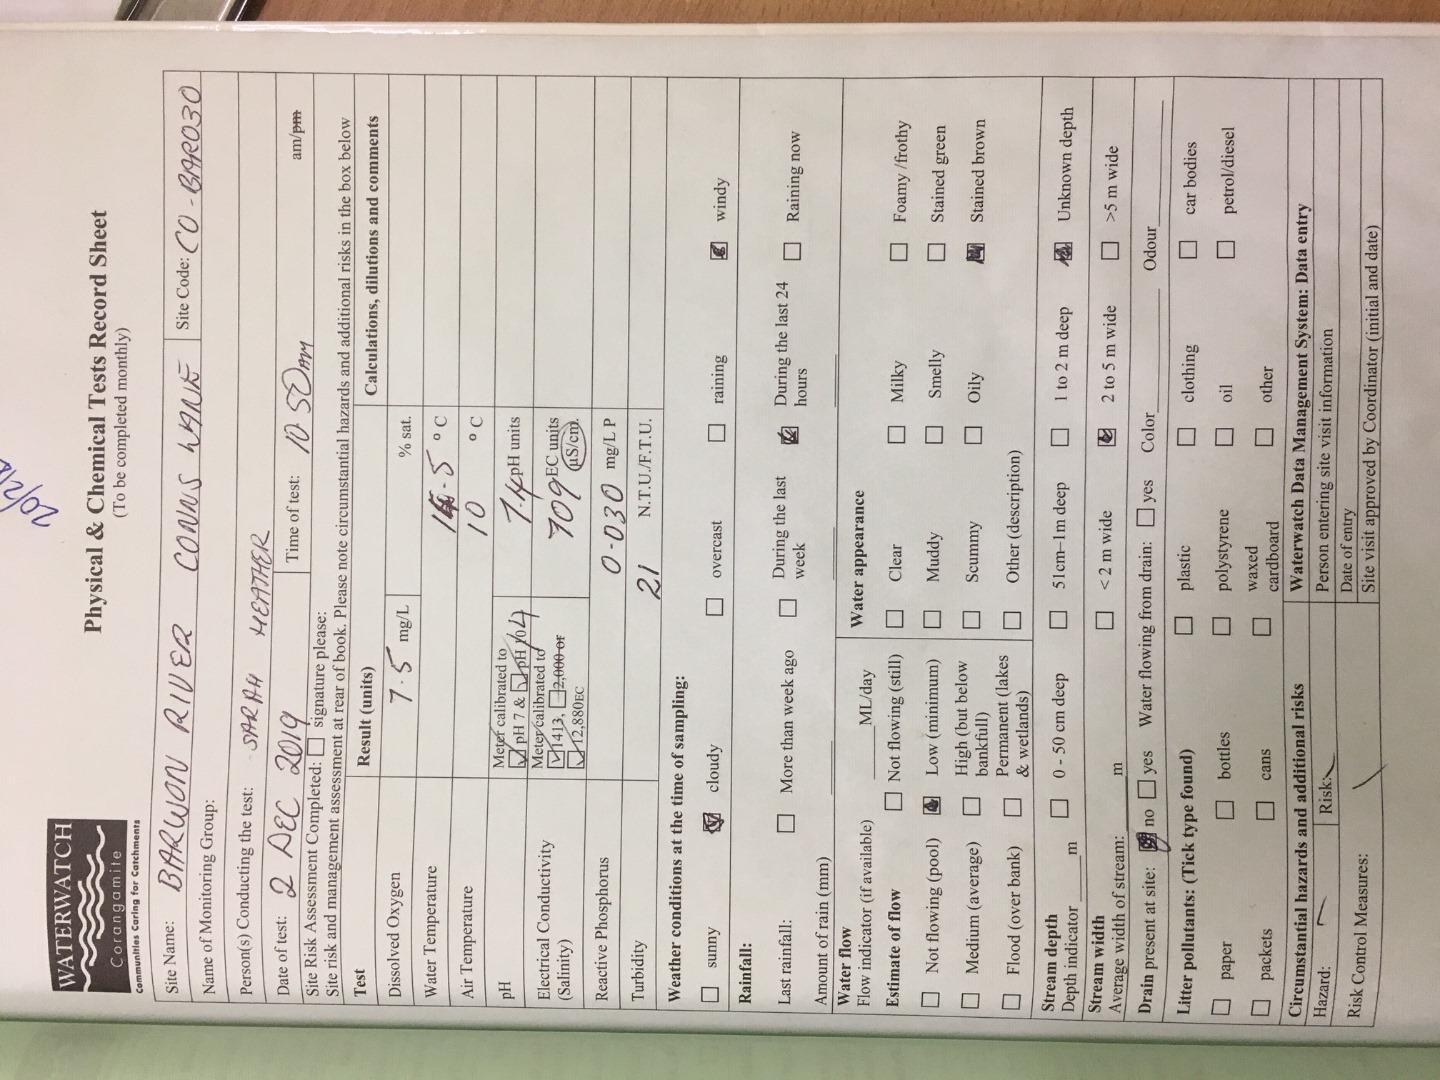 20/2/
WATERWATCH
Corangamite
Communities Caring for Catchments
Physical & Chemical Tests Record Sheet
(To be completed monthly)
Site Name: BARWON RIVER CONNS LANE Site Code: CO-BAR030
Name of Monitoring Group:
Person(s) Conducting the test: SARAH HEATHER
Date of test: 2 DEC 2019 Time of test: 10.50AM am/pm
Site Risk Assessment Completed: signature please:
Site risk and management assessment at rear of book. Please note circumstantial hazards and additional risks in the box below
Test Result (units) Calculations, dilutions and comments
Dissolved Oxygen 7.5 mg/L % sat.
Water Temperature .5 °C
Air Temperature 10 °C
pH Meter calibrated to pH 7 & pH 10 4 7.4 pH units
Electrical Conductivity (Salinity) Meter calibrated to 1413, 2,000 or 12,880EC 709 EC units µS/cm.
Reactive Phosphorus 0.030 mg/L P
Turbidity 21 N.T.U./F.T.U.
Weather conditions at the time of sampling:
sunny cloudy overcast raining windy
Rainfall:
Last rainfall: More than week ago During the last week During the last 24 hours Raining now
Amount of rain (mm)
Water flow
Flow indicator (if available) ML/day
Estimate of flow Not flowing (still)
Not flowing (pool) Low (minimum)
Medium (average) High (but below bankfull)
Flood (over bank) Permanent (lakes & wetlands)
Water appearance
Clear Milky Foamy /frothy
Muddy Smelly Stained green
Scummy Oily Stained brown
Other (description)
Stream depth
Depth indicator m 0 - 50 cm deep 51cm–1m deep 1 to 2 m deep Unknown depth
Stream width
Average width of stream: m < 2 m wide 2 to 5 m wide >5 m wide
Drain present at site: no yes Water flowing from drain: yes Color Odour
Litter pollutants: (Tick type found) plastic clothing car bodies
paper bottles polystyrene oil petrol/diesel
packets cans waxed cardboard other
Circumstantial hazards and additional risks
Hazard: Risk:
Risk Control Measures:
Waterwatch Data Management System: Data entry
Person entering site visit information
Date of entry
Site visit approved by Coordinator (initial and date)